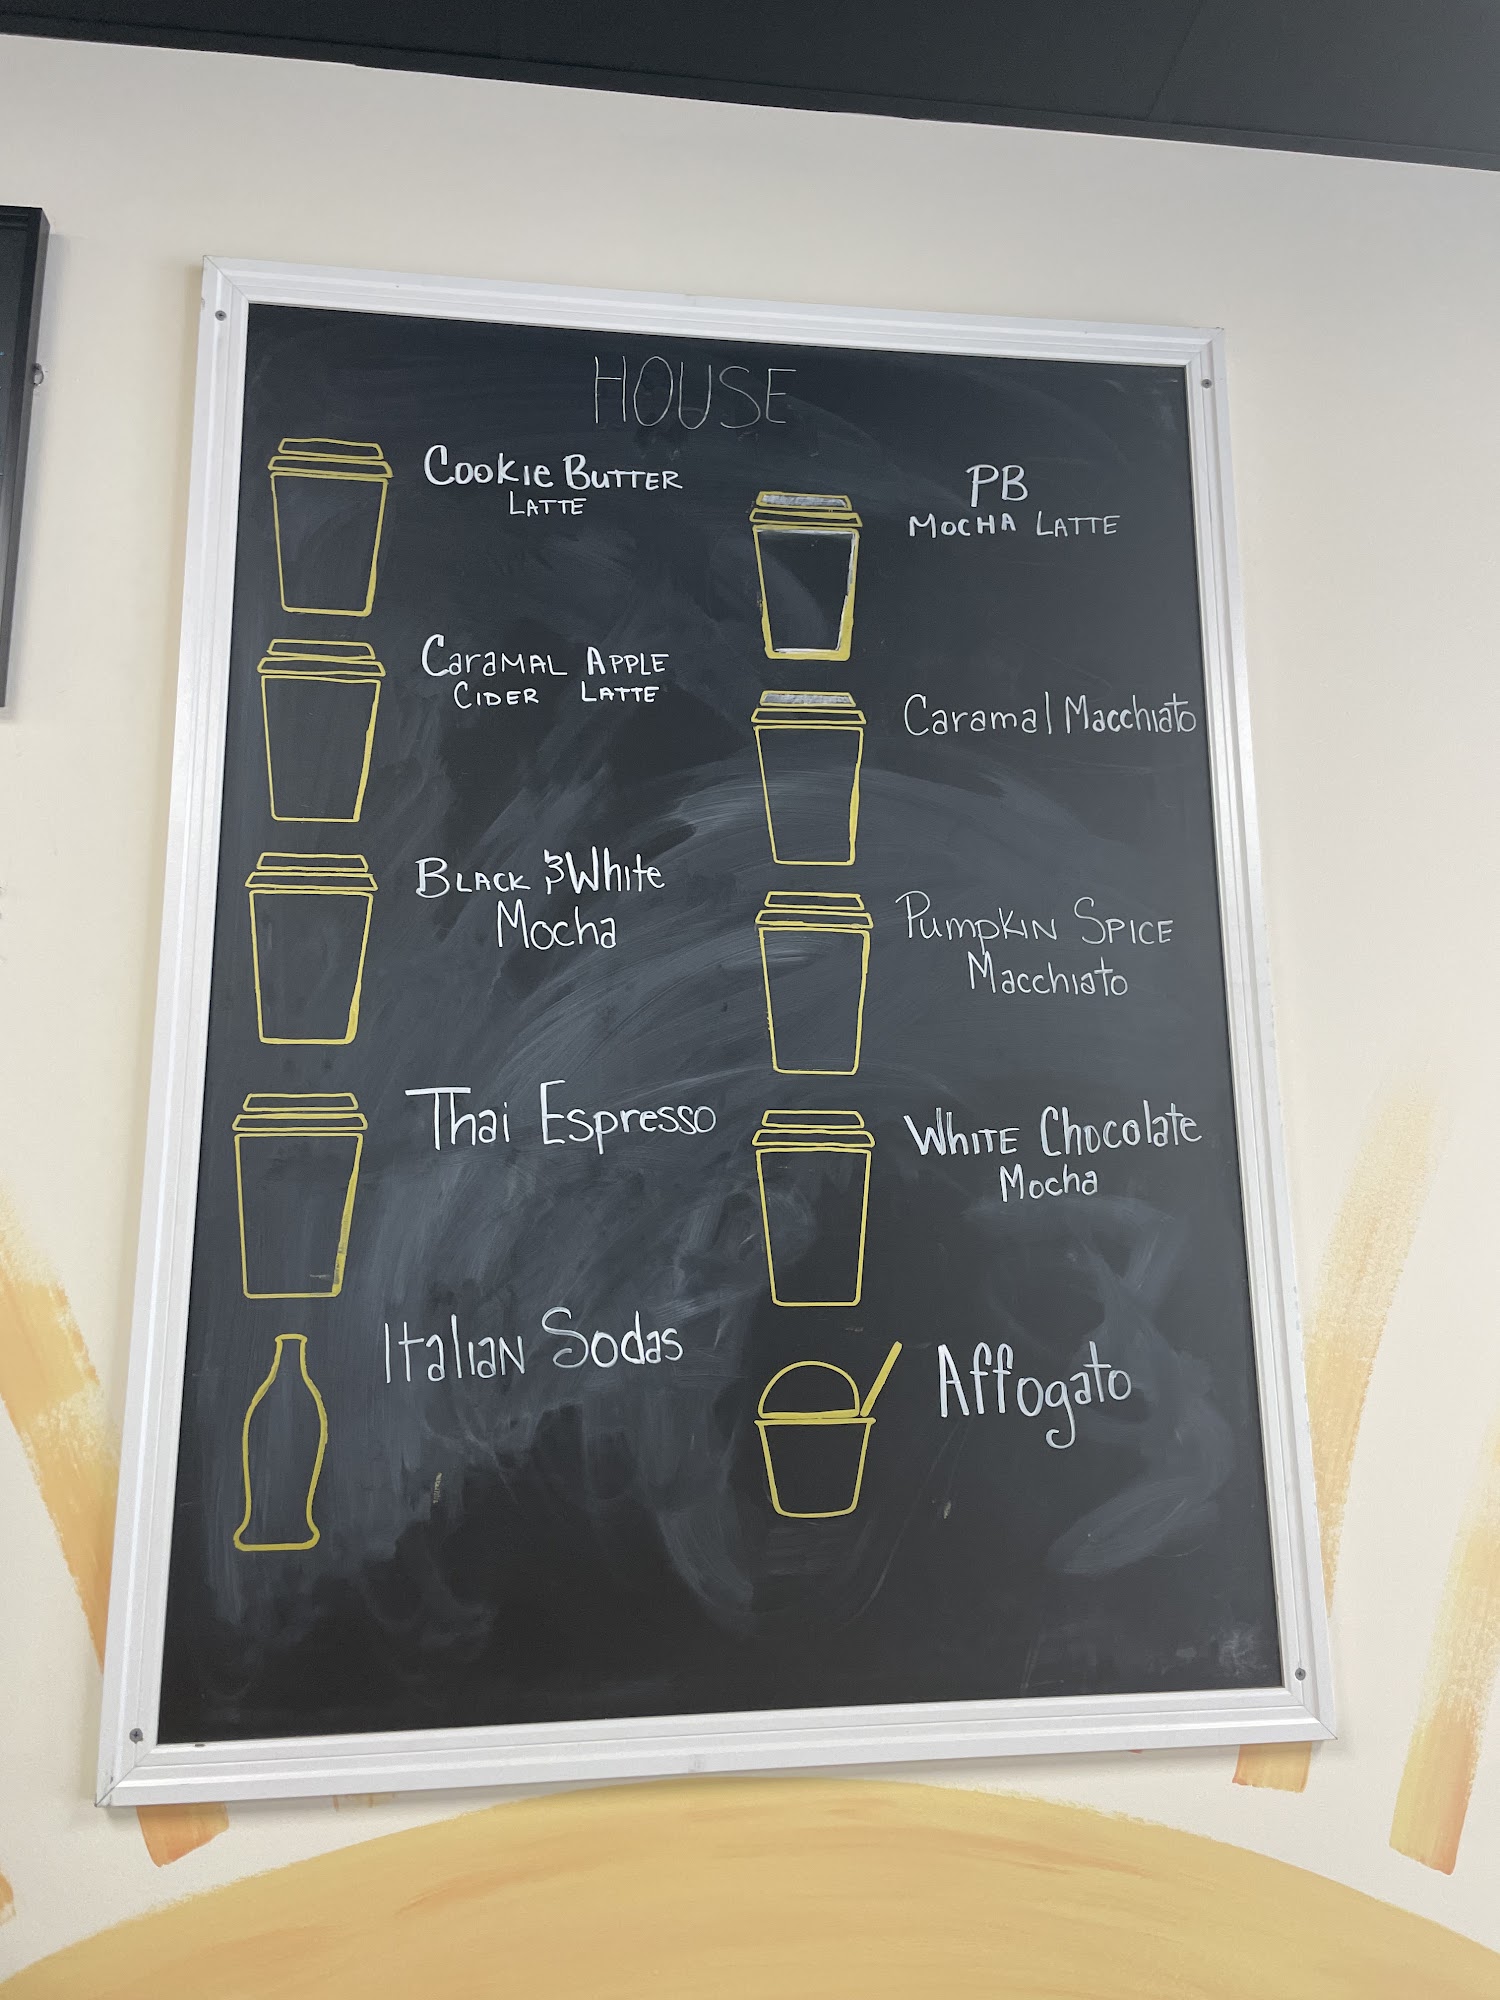 HOUSE
COOKIE BUTTER
LATTE
CaraMAL APPLE
CIDER LATTE
BLACK & White
Mocha
Thai Espresso
Italian Sodas
PB
MOCHA LATTE
Caramal Macchiato
PUMPKIN SPICE
Macchiato
WHITE Chocolate
Mocha
Affogato